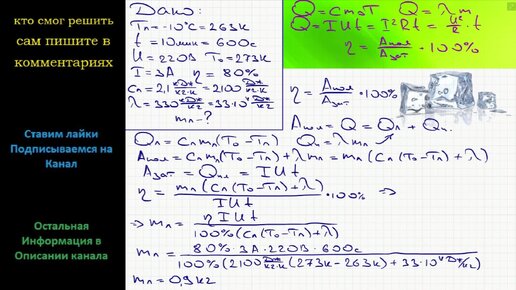 кто смог решить
сам пишите в
комментариях
Ставим лайки
Подписываемся на
Канал
Остальная
Информация в
Описании канала
Дано:
Tл = -10°C = 263К
t = 10мин = 600с
U = 220В T₀ = 273К
I = 3А η = 80%
Cл = 2,1 кДж/кг·К = 2100 Дж/кг·К
λ = 330 кДж/кг = 33·10⁴ Дж/кг
mл - ?
Q = cmΔT Q = λm
Q = IUt = I²Rt = U²/R · t
η = Aпол/Aзат · 100%
η = Aпол/Aзат · 100%
Aпол = Q = Qл + Qп.
Qл = Cлmл(T₀ - Tл) Qп = λmл
Aпол = Cлmл(T₀ - Tл) + λmл = mл(Cл(T₀ - Tл) + λ)
Aзат = Qпл = IUt
η = mл(Cл(T₀ - Tл) + λ)/IUt · 100% =>
=> mл = ηIUt/100%(Cл(T₀ - Tл) + λ)
mл = 80%·3А·220В·600с/100%(2100 Дж/кг·К (273К - 263К) + 33·10⁴ Дж/кг)
mл = 0,9кг